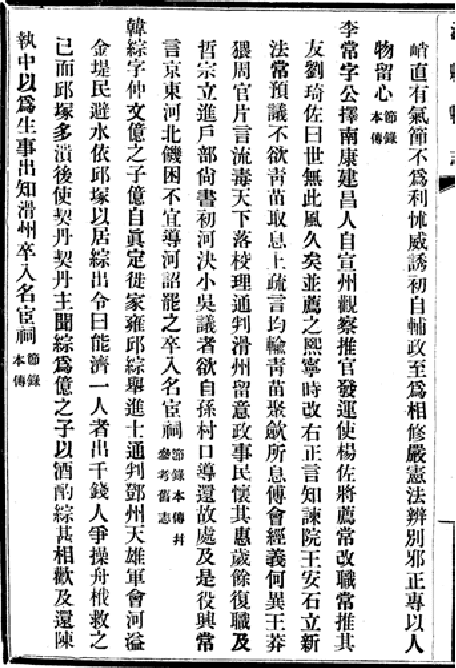 峭直有氣節不爲利怵威誘初自輔政至爲相修嚴憲法辨別邪正專以人
物留心節錄本傳
李常字公擇南康建昌人自宣州觀察推官發運使楊佐將薦常改職常推其
友劉琦佐曰世無此風久矣並薦之熙寧時改右正言知諫院王安石立新
法常預議不欲靑苗取息上疏言均輸靑苗聚斂所息傅會經義何異王莽
猥周官片言流毒天下落校理通判滑州留意政事民懷其惠歲餘復職及
哲宗立進戶部尙書初河決小吳議者欲自孫村口導還故處及是役興常
言京東河北饑困不宜導河詔罷之卒入名宦祠節錄本傳幷參考舊志
韓綜字仲文億之子億自眞定徙家雍邱綜舉進士通判鄧州天雄軍會河溢
金堤民避水依邱塚以居綜出令曰能濟一人者出千錢人爭操舟栰救之
已而邱塚多潰後使契丹契丹主聞綜爲億之子以酒酌綜甚相歡及還陳
執中以爲生事出知滑州卒入名宦祠節錄本傳